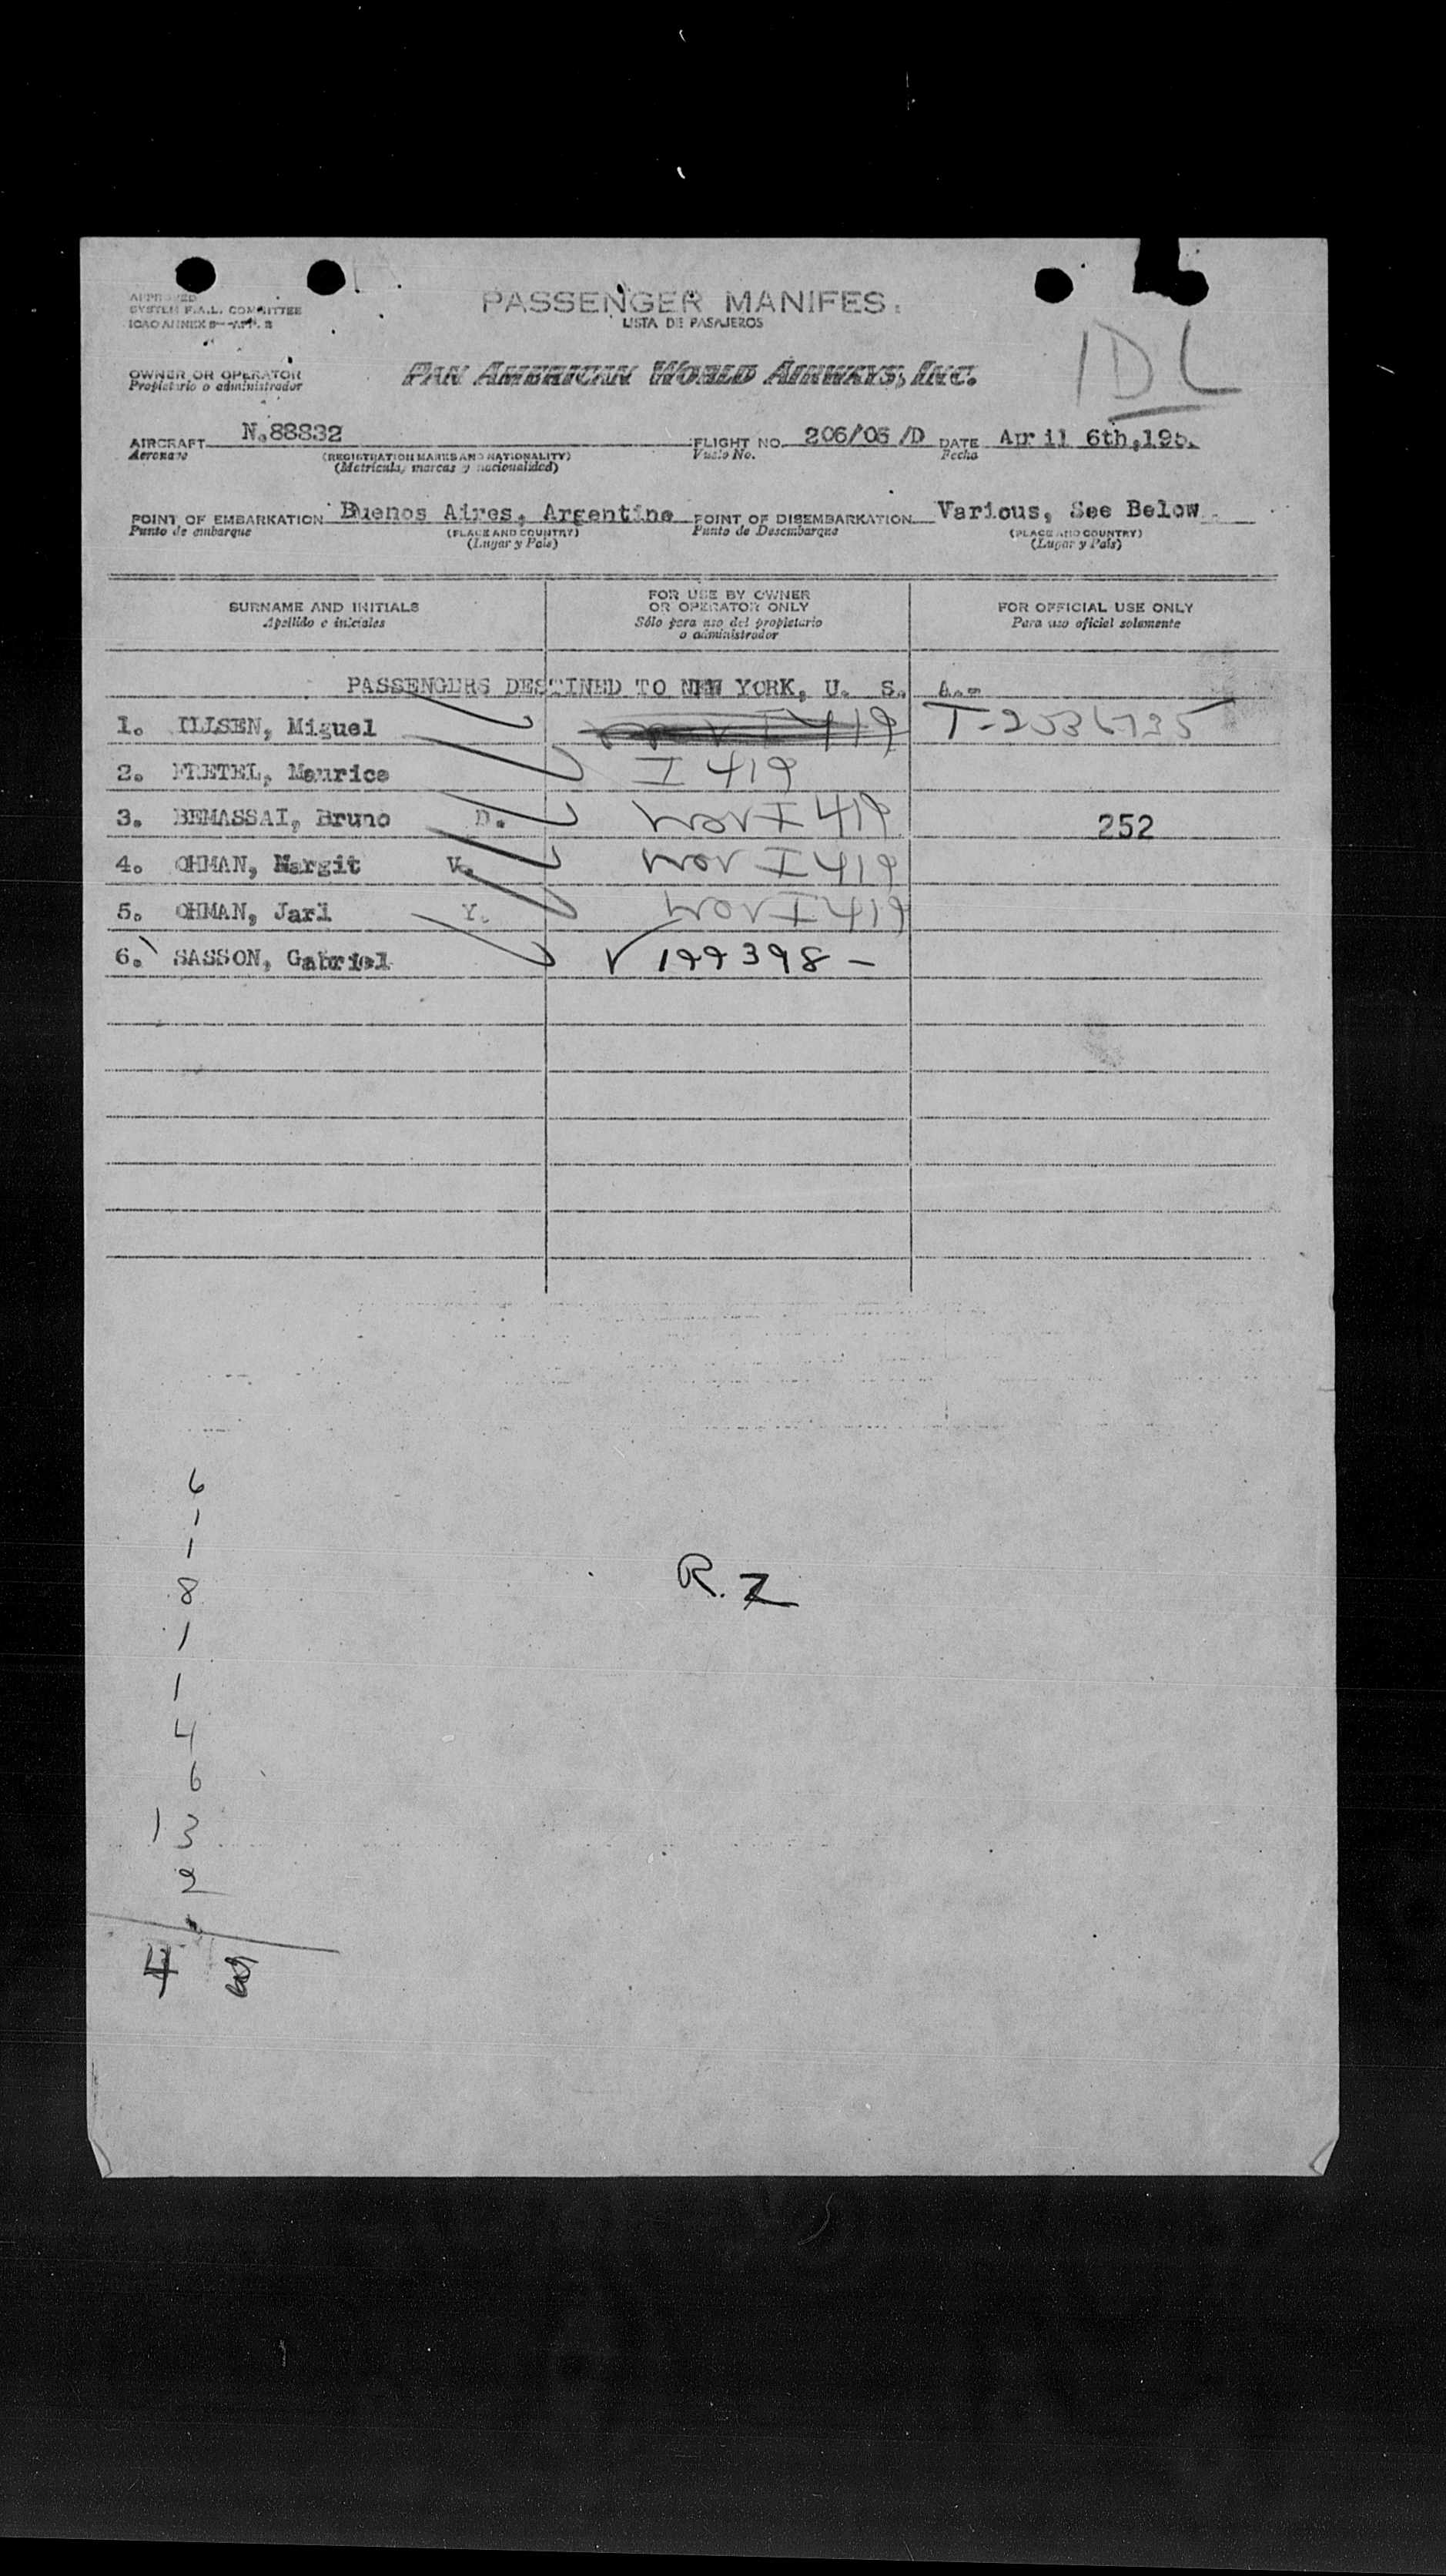 APPROVED
SYSTEM F.A.L. COMMITTEE
ICAO ANNEX 9—APP. 3
PASSENGER MANIFES
LISTA DE PASAJEROS
IDL
OWNER OR OPERATOR
Propietario o administrador
PAN AMERICAN WORLD AIRWAYS, INC.
AIRCRAFT N.88832 FLIGHT NO. 206/05 /D DATE April 6th,195
Aeronave (REGISTRATION MARKS AND NATIONALITY) Vuelo No. Fecha
(Matrícula, marcas y nacionalidad)
POINT OF EMBARKATION Buenos Aires, Argentine POINT OF DISEMBARKATION Various, See Below
Punto de embarque (PLACE AND COUNTRY) Punto de Desembarque (PLACE AND COUNTRY)
(Lugar y País) (Lugar y País)
SURNAME AND INITIALS FOR USE BY OWNER OR OPERATOR ONLY FOR OFFICIAL USE ONLY
Apellido e iniciales Sólo para uso del propietario o administrador Para uso oficial solamente
PASSENGERS DESTINED TO NEW YORK, U. S. A.-
1. ILLSEN, Miguel I 419 T-2536735
2. FRETEL, Maurice I 419
3. BEMASSAI, Bruno D. I 419 252
4. OHMAN, Margit V. I 419
5. OHMAN, Jarl Y. I 419
6. SASSON, Gabriel V 199398 -
6
1
1
8
1
1
4
6
13
2
4
R.Z